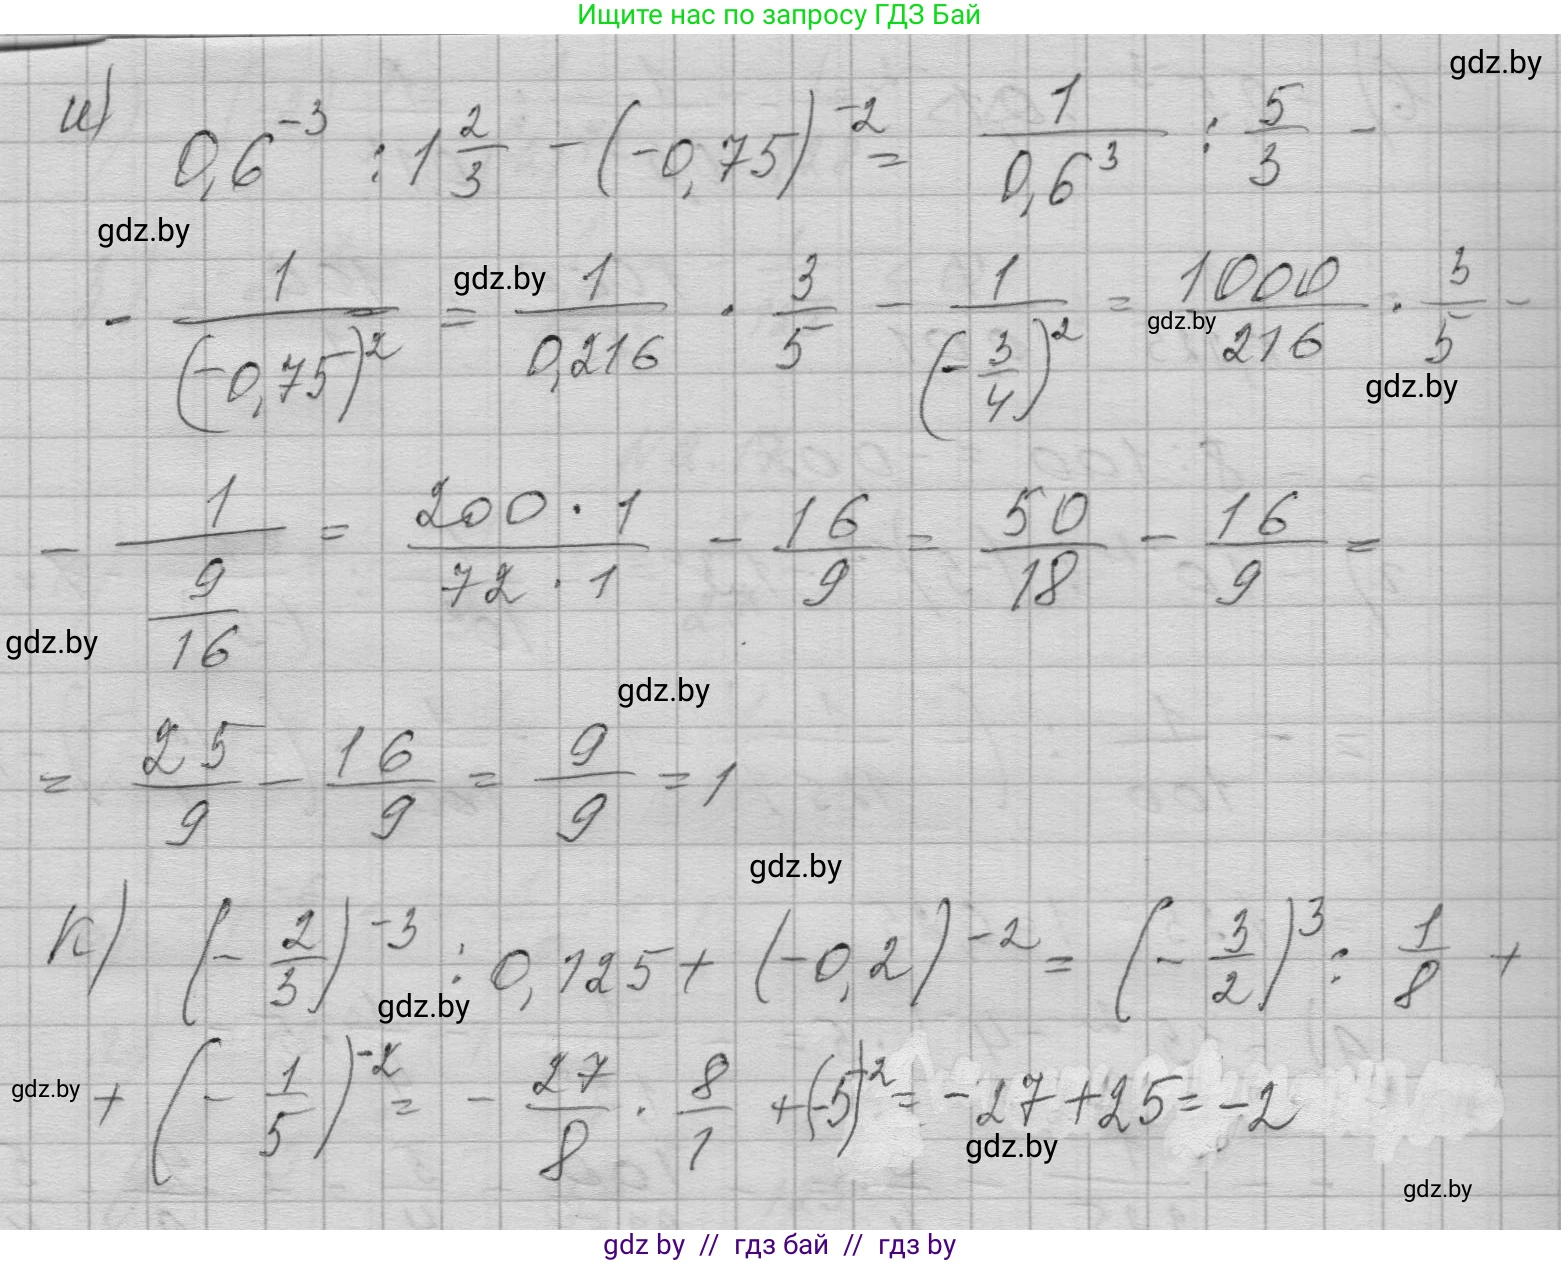 Ищите нас по запросу ГДЗ Бай
gdz.by
и) 0,6^{-3} : 1 2/3 - (-0,75)^{-2} = 1/0,6^3 : 5/3 -
gdz.by
gdz.by
- 1/(-0,75)^2 = 1/0,216 · 3/5 - 1/(-3/4)^2 = 1000/216 · 3/5 -
gdz.by
gdz.by
- 1/(9/16) = 200·1/72·1 - 16/9 = 50/18 - 16/9 =
gdz.by
gdz.by
= 25/9 - 16/9 = 9/9 = 1
gdz.by
к) (-2/3)^{-3} : 0,125 + (-0,2)^{-2} = (-3/2)^3 : 1/8 +
gdz.by
gdz.by
+ (-1/5)^{-2} = -27/8 · 8/1 + (-5)^2 = -27 + 25 = -2
gdz.by
gdz.by
gdz by // гдз бай // гдз by